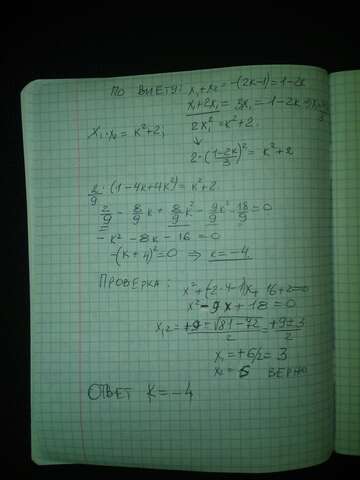 ПО ВИЕТУ: x₁+x₂ = -(2k-1) = 1-2k
x₁+2x₁ = 3x₁ = 1-2k
x₁·x₂ = k²+2,
2x₁² = k²+2
↓
2·(1-2k/3)² = k²+2
2/9·(1-4k+4k²) = k²+2
2/9 - 8/9k + 8/9k² - 9/9k² - 18/9 = 0
-k² - 8k - 16 = 0
-(k+4)² = 0 ⇒ k = -4
ПРОВЕРКА:
x²+(-2·4-1)x+16+2=0
x²-9x+18=0
x₁,₂ = +9±√81-72/2 = +9±3/2
x₁ = +6/2 = 3
x₂ = 6 ВЕРНО
ОТВЕТ K = -4